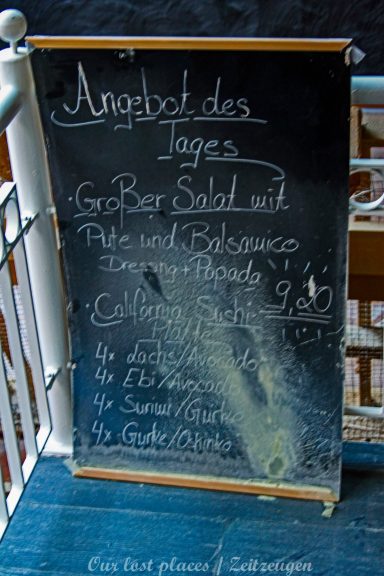 Angebot des
Tages
· Großer Salat mit
Pute und Balsamico
Dressng + Papada
9,20
· California Sushi
4x Lachs/Avocado
4x Ebi/Avocado
4x Surimi/Gurke
4x Gurke/Oshinko
Our lost places / Zeitzeugen